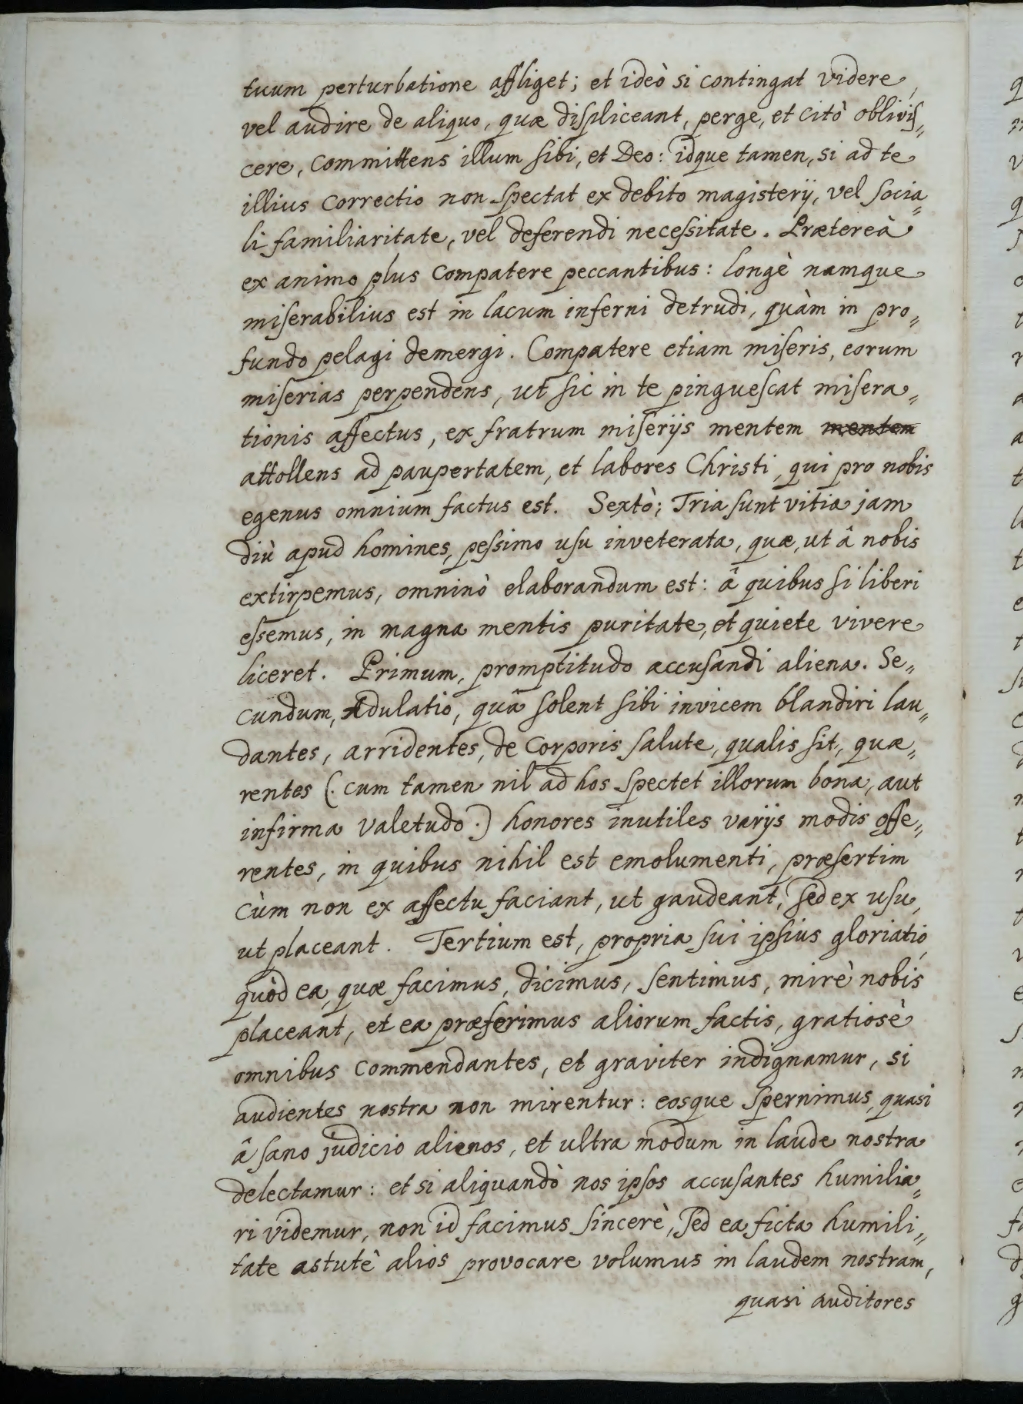 tuum perturbatione affliget; et ideò si contingat videre,
vel audire de aliquo, quæ displiceant, perge, et citò oblivis„
cere, Committens illum sibi, et Deo: idque tamen, si ad te
illius Correctio non spectat ex debito magisterij, vel socia„
li familiaritate, vel deferendi necessitate. Prætereà
ex animo plus Compatere peccantibus: longè namque
miserabilius est in lacum inferni detrudi, quàm in pro„
fundo pelagi demergi. Compatere etiam miseris, eorum
miserias perpendens, ut sic in te pinguescat misera„
tionis affectus, ex fratrum miserijs mentem mentem
attollens ad paupertatem, et labores Christi, qui pro nobis
egenus omnium factus est. Sextò; Tria sunt vitia jam
diù apud homines, pessimo usu inveterata, quæ, ut â nobis
extirpemus, omninò elaborandum est: â quibus si liberi
essemus, in magna mentis puritate, et quiete vivere
liceret. Primum, promptitudo accusandi aliena. Se„
cundum, Adulatio, quâ solent sibi invicem blandiri lau„
dantes, arridentes, de Corporis salute, qualis sit, quæ„
rentes (. cum tamen nil ad hos spectet illorum bona, aut
infirma valetudo .) honores inutiles varijs modis offe„
rentes, in quibus nihil est emolumenti, præsertim
Cùm non ex affectu faciant, ut gaudeant, sed ex usu,
ut placeant. Tertium est, propria sui ipsius gloriatio,
quòd ea, quæ facimus, dicimus, sentimus, mirè nobis
placeant, et ea præferimus aliorum factis, gratiosè
omnibus Commendantes, et graviter indignamur, si
audientes nostra non mirentur: eosque spernimus, quasi
â sano judicio alienos, et ultra modum in laude nostra
delectamur: et si aliquandò nos ipsos accusantes humilia„
ri videmur, non id facimus sincerè, sed ea ficta humili„
tate astutè alios provocare volumus in laudem nostram,
quasi auditores